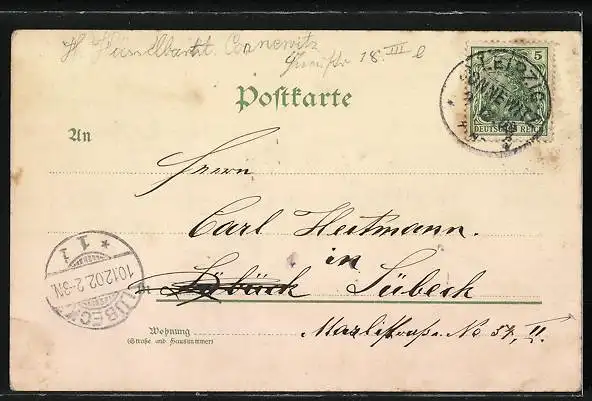 Connewitz
18 III l
5
DEUTSCHES REICH
LEIPZIG
CONNEWITZ
Postkarte
An
Herrn
Carl Heitmann.
in
Lübeck
Marlistraße No 57, II.
Wohnung
(Straße und Hausnummer)
* 1 1
10.12.02. 2-3N.
LÜBECK